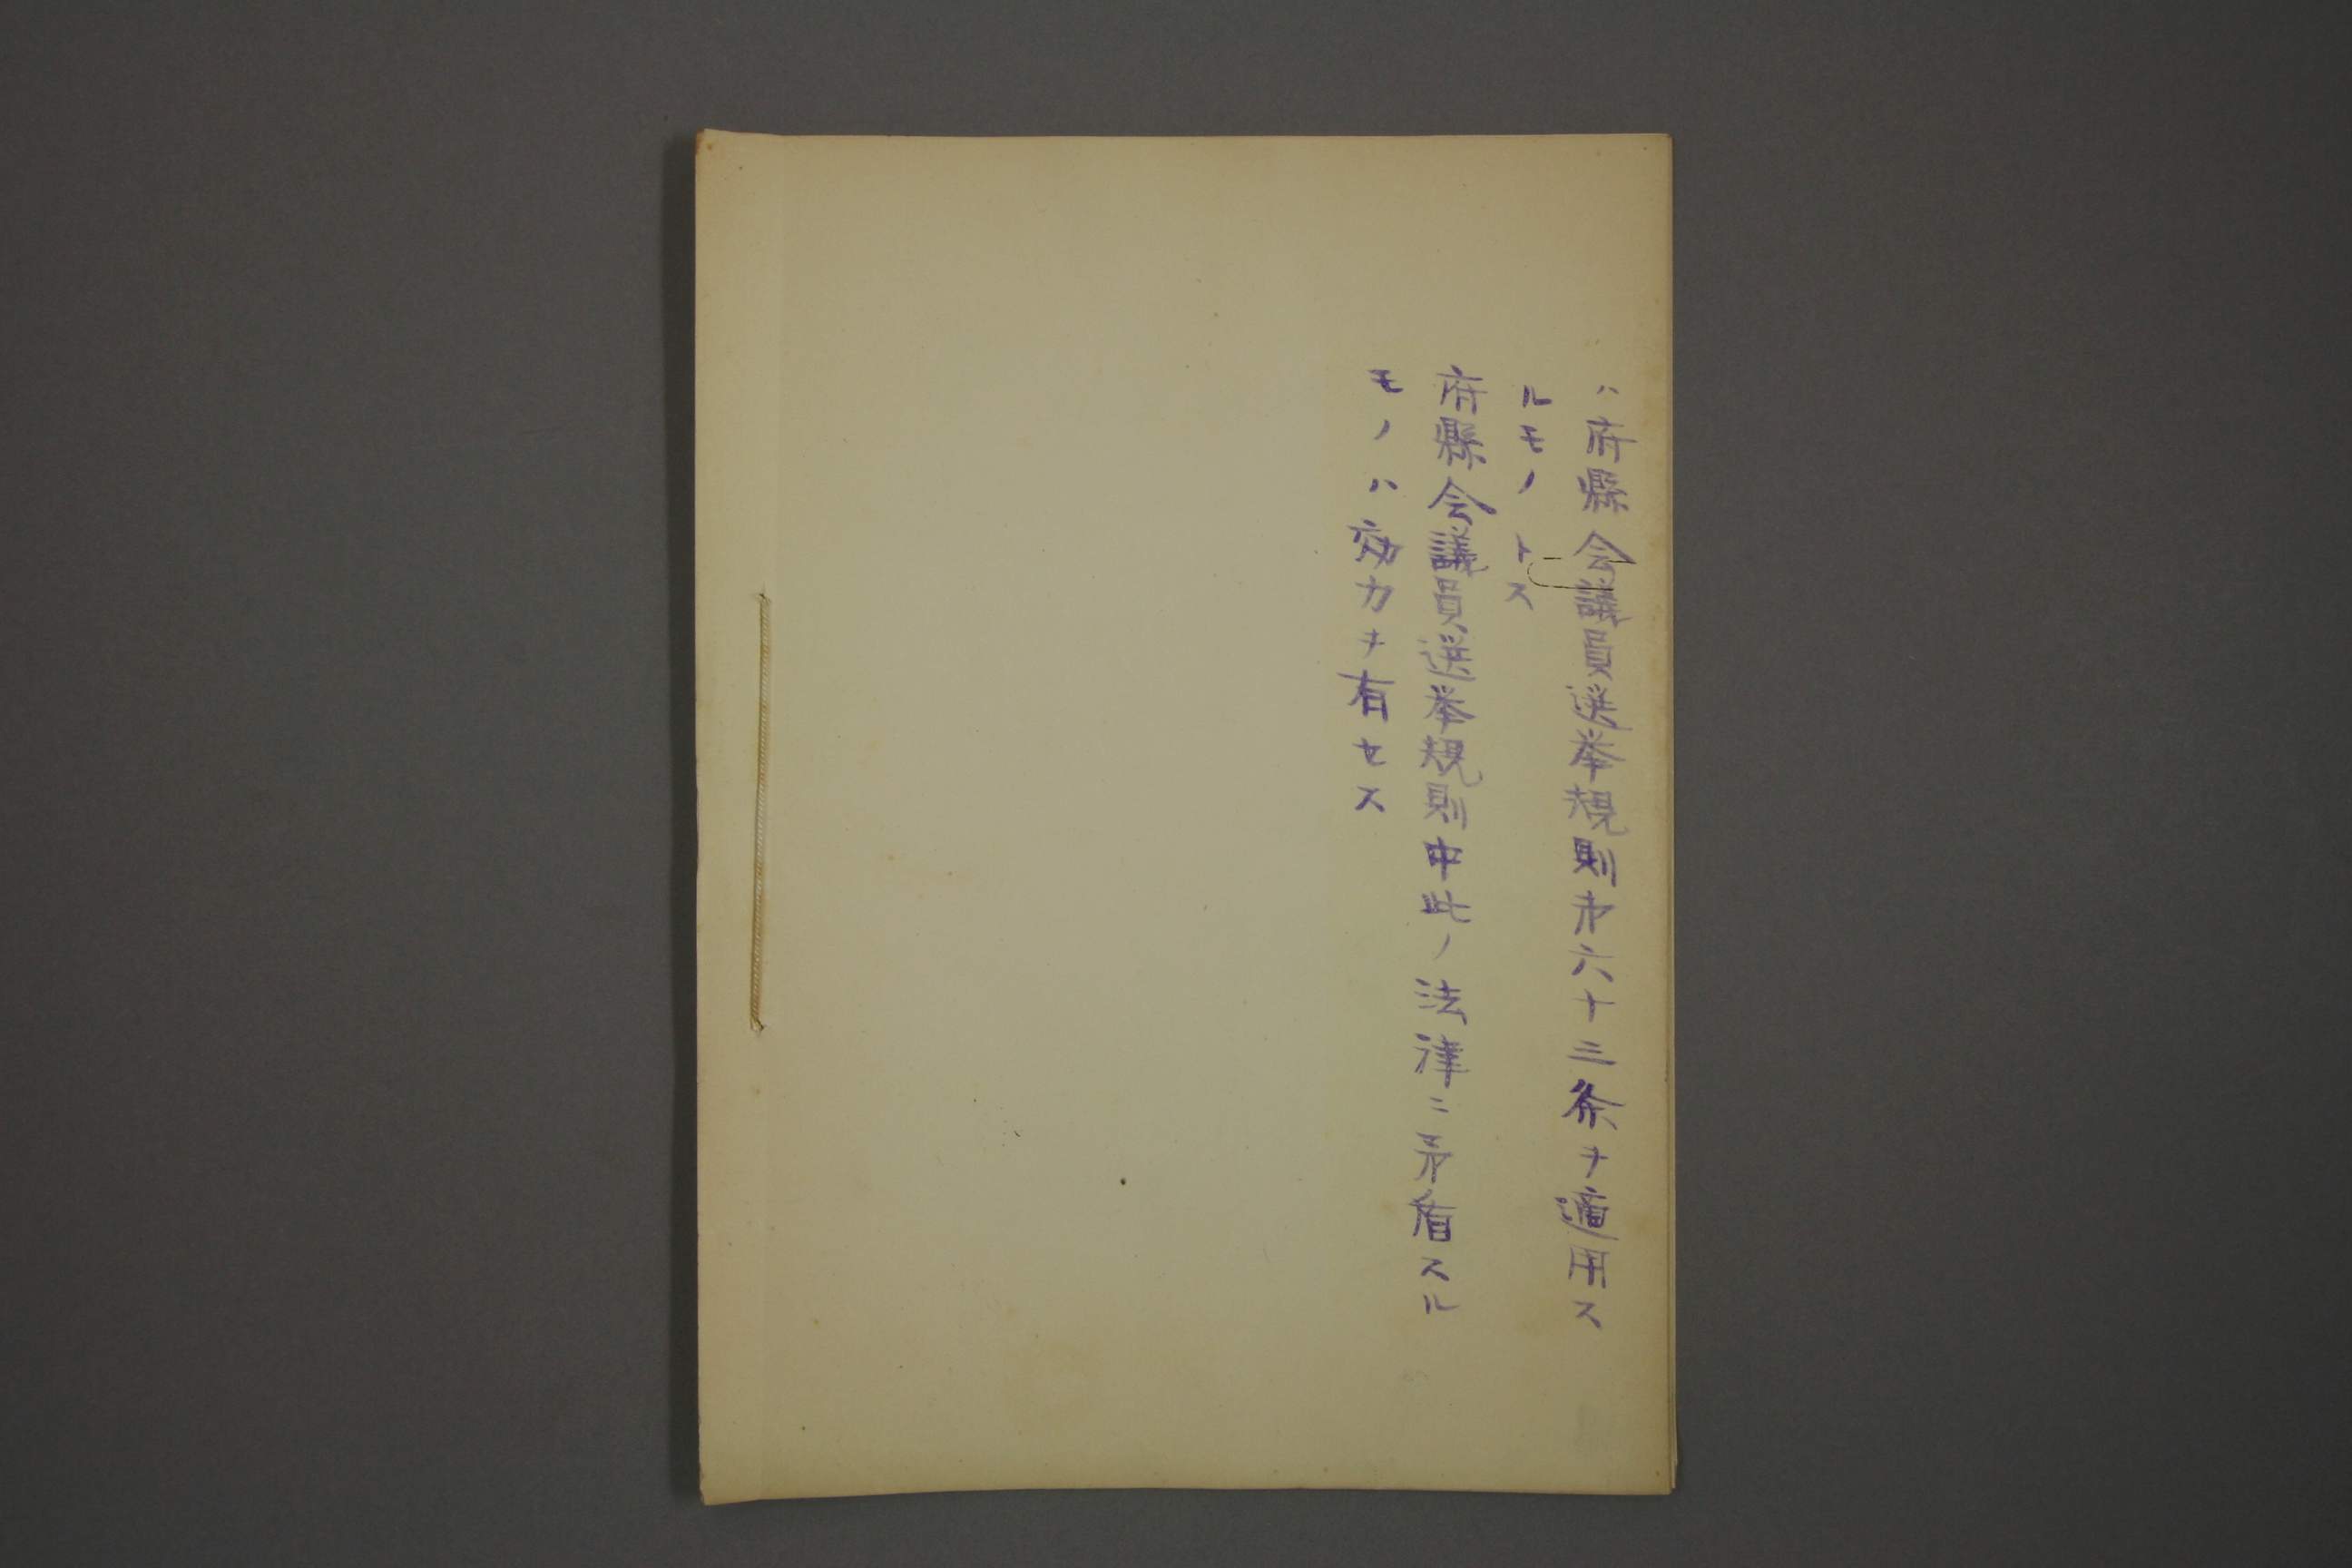 ハ府縣会議員選挙規則㐧六十三条ヲ適用ス
ルモノトス
府縣会議員選挙規則中此ノ法律ニ矛盾スル
モノハ効力ヲ有セス